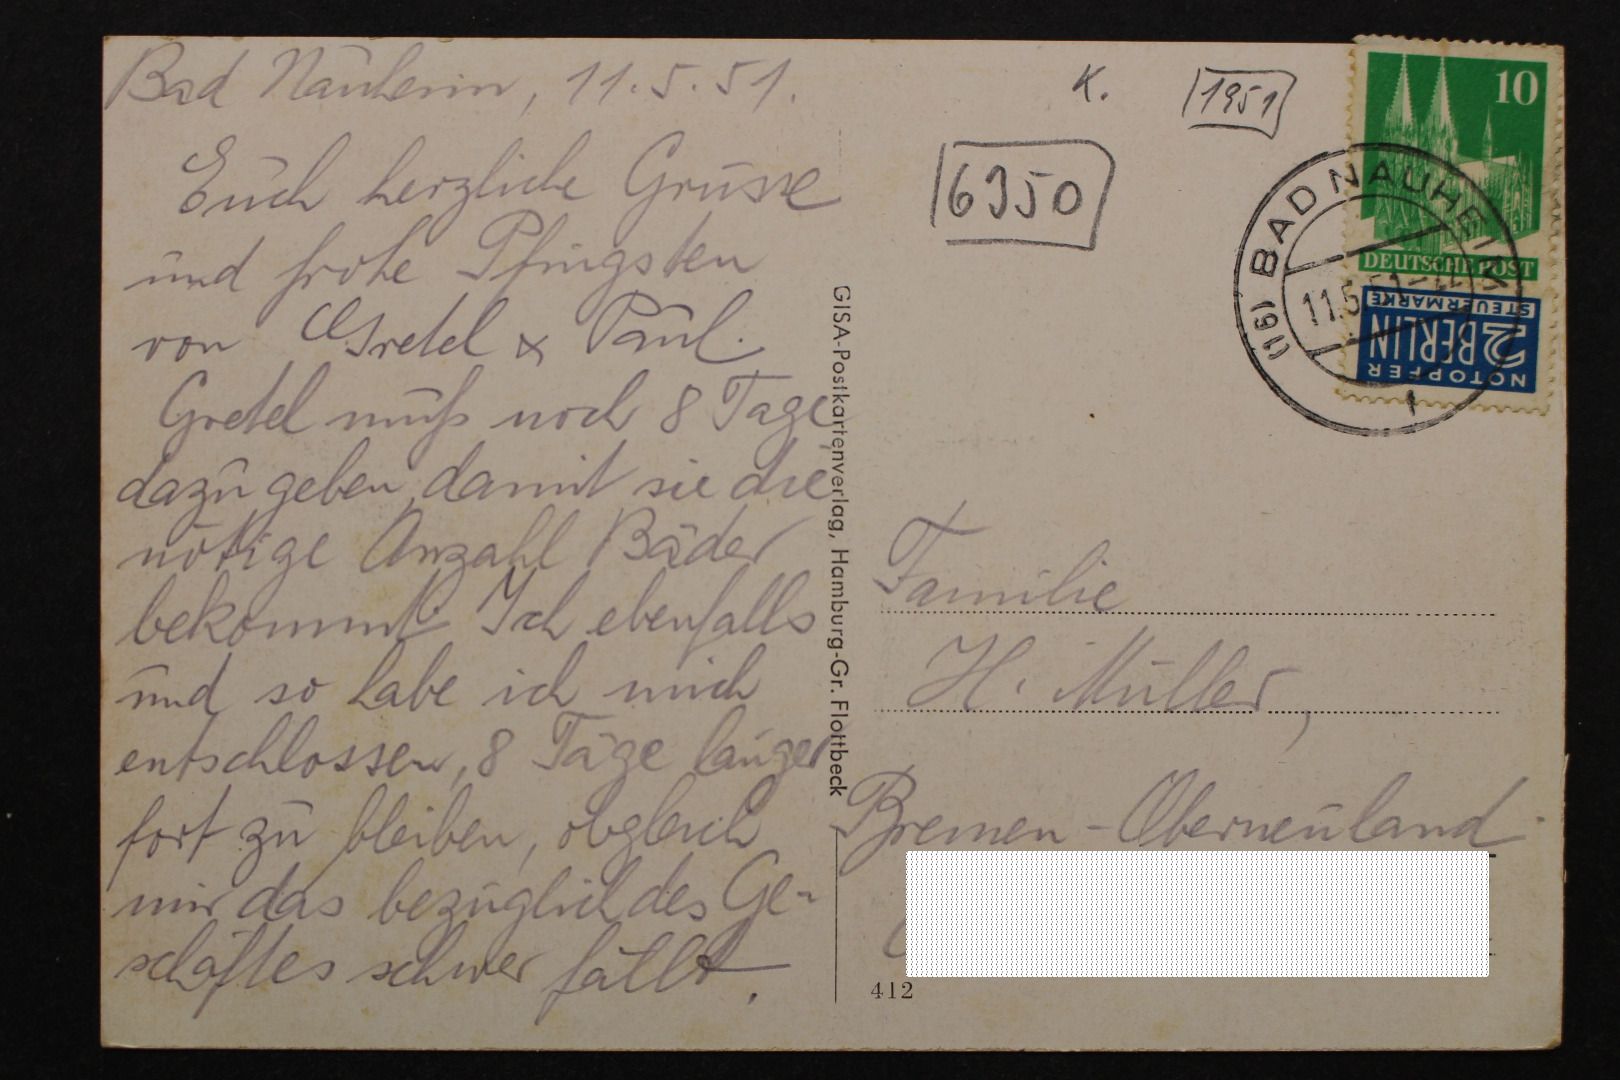 Bad Nauheim, 11.5.51.
Euch herzliche Grüsse
und frohe Pfingsten
von Gretel & Paul.
Gretel muß noch 8 Tage
dazu geben, damit sie die
nötige Anzahl Bäder
bekommt. Ich ebenfalls
und so habe ich mich
entschlossen, 8 Tage länger
fort zu bleiben, obgleich
mir das bezüglich des Ge-
schäftes schwer fällt.
GISA-Postkartenverlag, Hamburg-Gr. Flottbeck
K.
1951
6350
10
DEUTSCHE POST
NOTOPFER
2 BERLIN
STEUERMARKE
(16) BAD NAUHEIM
11.5.51
Familie
H. Müller,
Bremen-Oberneuland
412